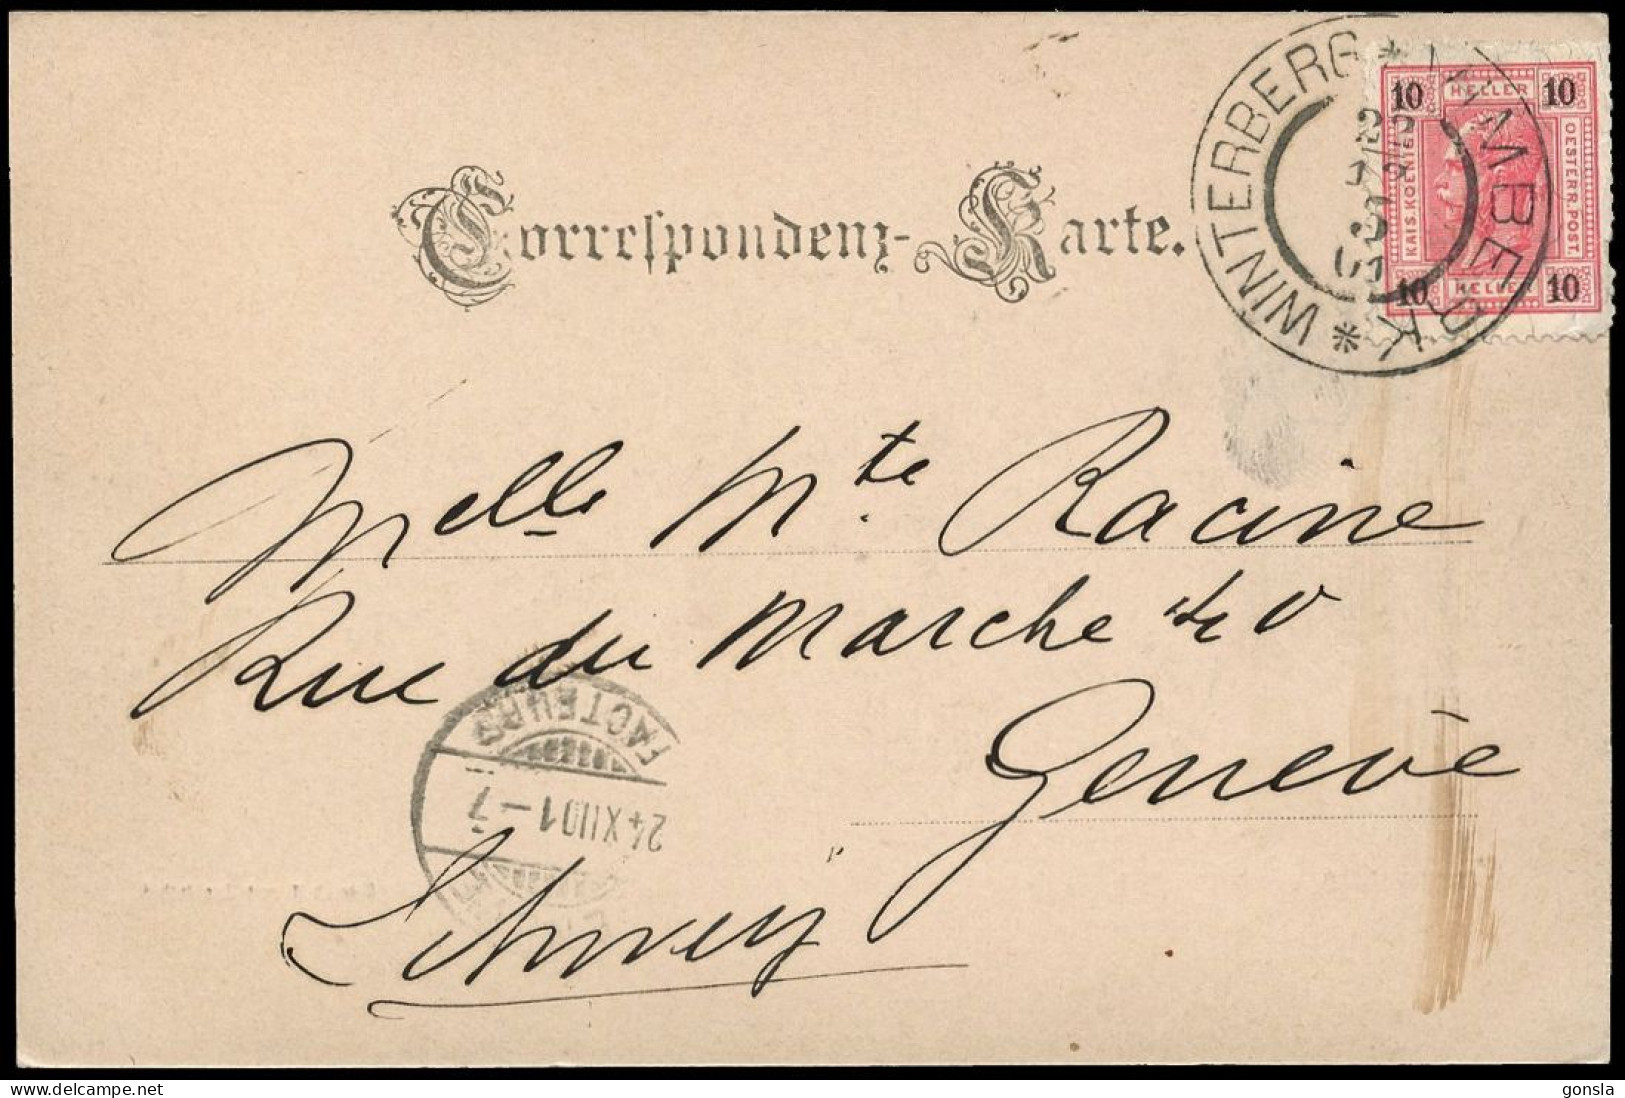 Correspondenz-Karte.
WINTERBERG * VIMBERK *
22
12
01
10 HELLER 10
KAIS. KOENIGL. OESTERR. POST.
10 HELLER 10
Melle Mte. Racine
Rue du Marche 40
Genève
Schweiz
FACTEURS
24 XII 01 - 7
gonsla